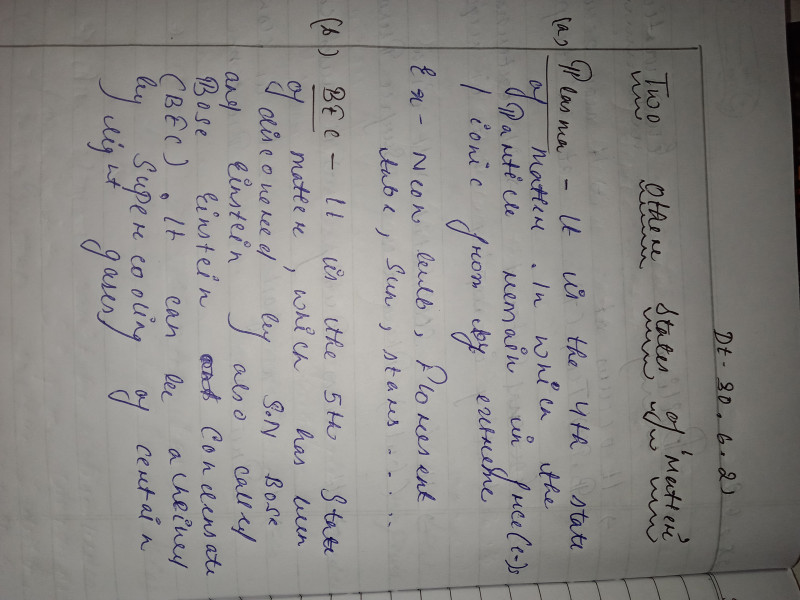 Dt- 30.6.21
Two Other States of 'Matter'
(a) Plasma - It is the 4th state
of matter. In which the
Particle remain in free (e-)s
/ ionic from by extreme
Ex- Neon bulb, Florescent
tube, Sun, stars....
(b) BEC - It is the 5th State
of matter, which has been
discovered by S.N Bose
and Einstein also called
Bose Einstein Condensate
(BEC). It can be achieved
by Super cooling of certain
light gases